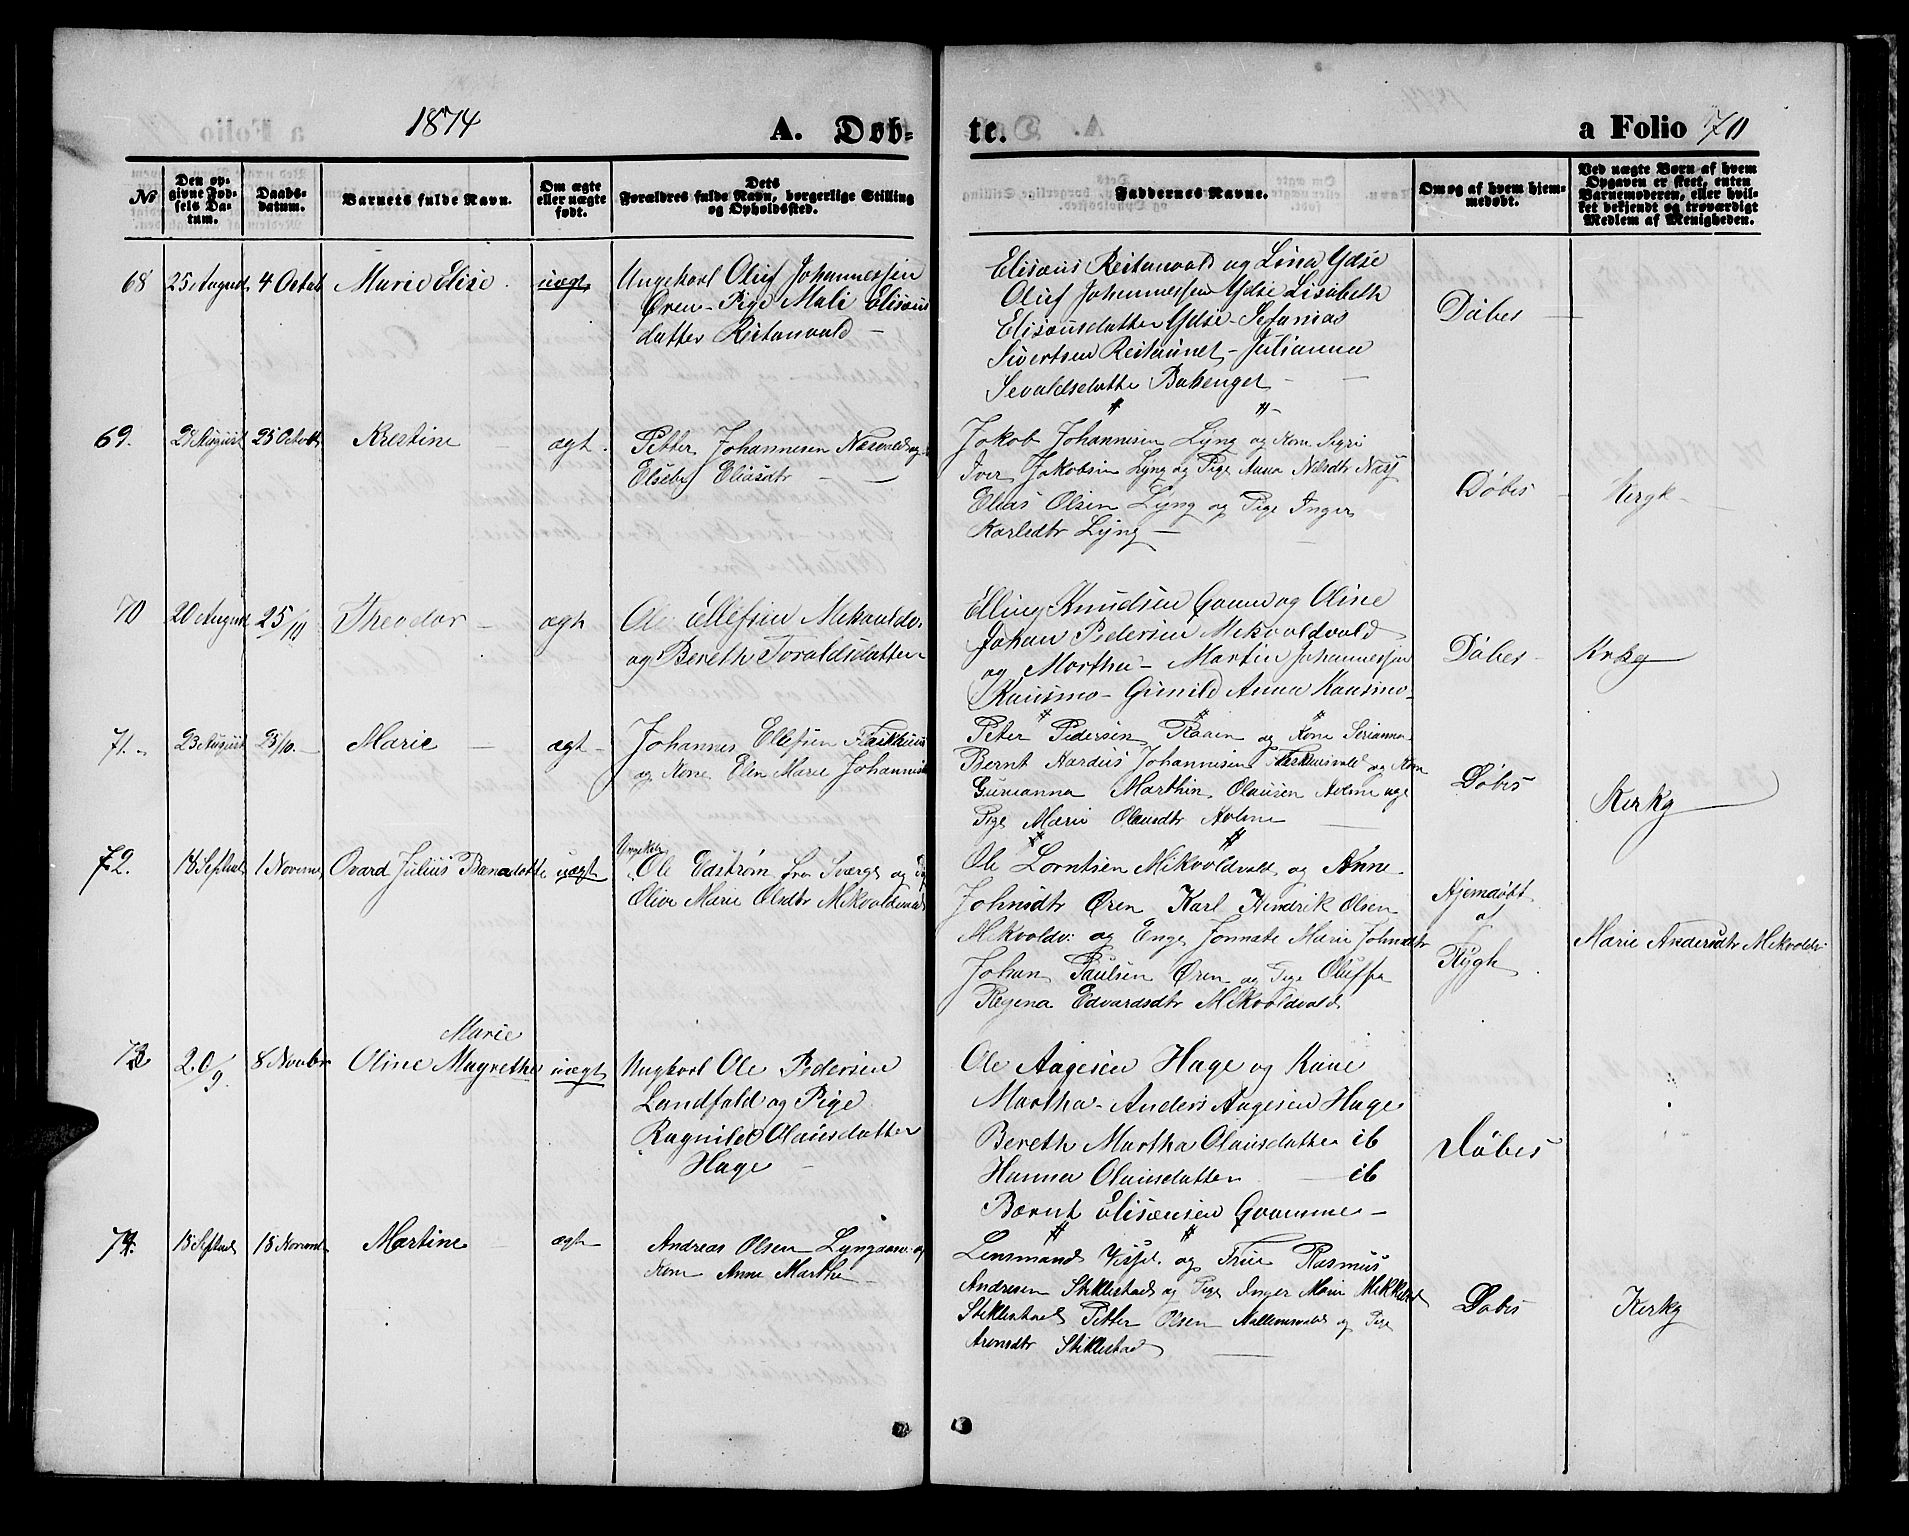 1874
A. Døb-
te.
a Folio 70
No
Den op-
givne Fød-
sels Da-
tum.
Daabs-
datum.
Barnets fulde Navn.
Om ægte
eller uægte
født.
Dets
Forældres fulde Navn, borgerlige Stilling
og Opholdssted.
Faddernes Navne.
Om og af hvem hjem-
medøbt.
Ved uægte Børn af hvem
Opgaven er skeet, enten
Barnemoderen, eller hvil-
ket bekjendt og troværdigt
Medlem af Menigheden.
68
25 August
4 Octob
Marie Elise
uægt
Ungekarl Oluf Johannessen
Øren - Pige Mali Elisæus
datter Reitanvald -
Elisæus Reitanvald og Lina Ydse
Oluf Johannessen Ydse Lisabeth
Elisæusdatter Ydse - Sefanias
Sivertsen Reitaunet - Julianna
Sevaldsdatte Bakenget
Døbes
69.
28 August
25 Octob
Kristine
ægt.
Petter Johannesen Næsvald og
Elseby Eliasdtr
Jakob Johannesen Lyng og Kone Sigri
Iver Jakobsen Lyng og Pige Anna Nilsdtr Næss
Elias Olsen Lyng og Pige Inger
Karlsdtr Lyng
Døbes
Kirgk
70
20 August
25/10
Theodor
ægt
Ole Ellefsen Mikvoldv.
og Bereth Toraldsdatter
Elling Knudsen Gomo og Oline
Johan Pedersen Mikvoldvald
og Martha - Martin Johannessen
Kausmo - Gunild Anna Kausmo
Døbes
Kirkg
71.
23 August
25/10.
Marie
ægt
Johannes Ellefsen Fleskhus
og Kone Elen Marie Johannesd
Peter Pedersen Raaen og Kone Serianna
Bernt Hardus Johannesen Fleskhusvald og Kone
Gurianna Marthin Olausen Holme og
Pige Marie Olausdtr Holme
Døbes
Kirkg
72.
18 Septbr
1 Novemb
Ovard Julius Banadotte
uægt
Ungekarl
Ole Edstrøm fra Sverge og Pige
Olive Marie Olsdtr Mikvoldvald
Ole Lorntsen Mikvoldvald og Anne
Johnsdtr Øren Karl Hendrik Olsen
Mikvoldv: og Enge Jonnate Marie Johnsdtr
Johan Paulsen Øren og Pige Oluffa
Regina Edvardsdtr Mikvoldvald
Hjemdøbt
af
Rygh
Marie Andersdtr Mikvoldv
73
20/9.
8 Novbr
Marie
Oline Magrethe
uægt
Ungkarl Ole Pedersen
Landfald og Pige
Ragnild Olausdatter
Hage
Ole Aagesen Hage og Kone
Martha - Anders Aagesen Hage
Bereth Martha Olausdatter ib
Hanna Olausdatter ib
Bærnt Elisæusen Gramme -
Døbes
74.
18 Septbr
15 Novemb
Martine
ægt
Andreas Olsen Lyngaasv. og
Kone Anne Martha
Lensmand Visjd. og Frue Rasmus
Andresen Stiklestad og Pige Inger Marie Mikkelsd
Stiklestad Petter Olsen Hallemsvald og Pige
Aronsdtr Stiklestad
Døbes
Kirkg